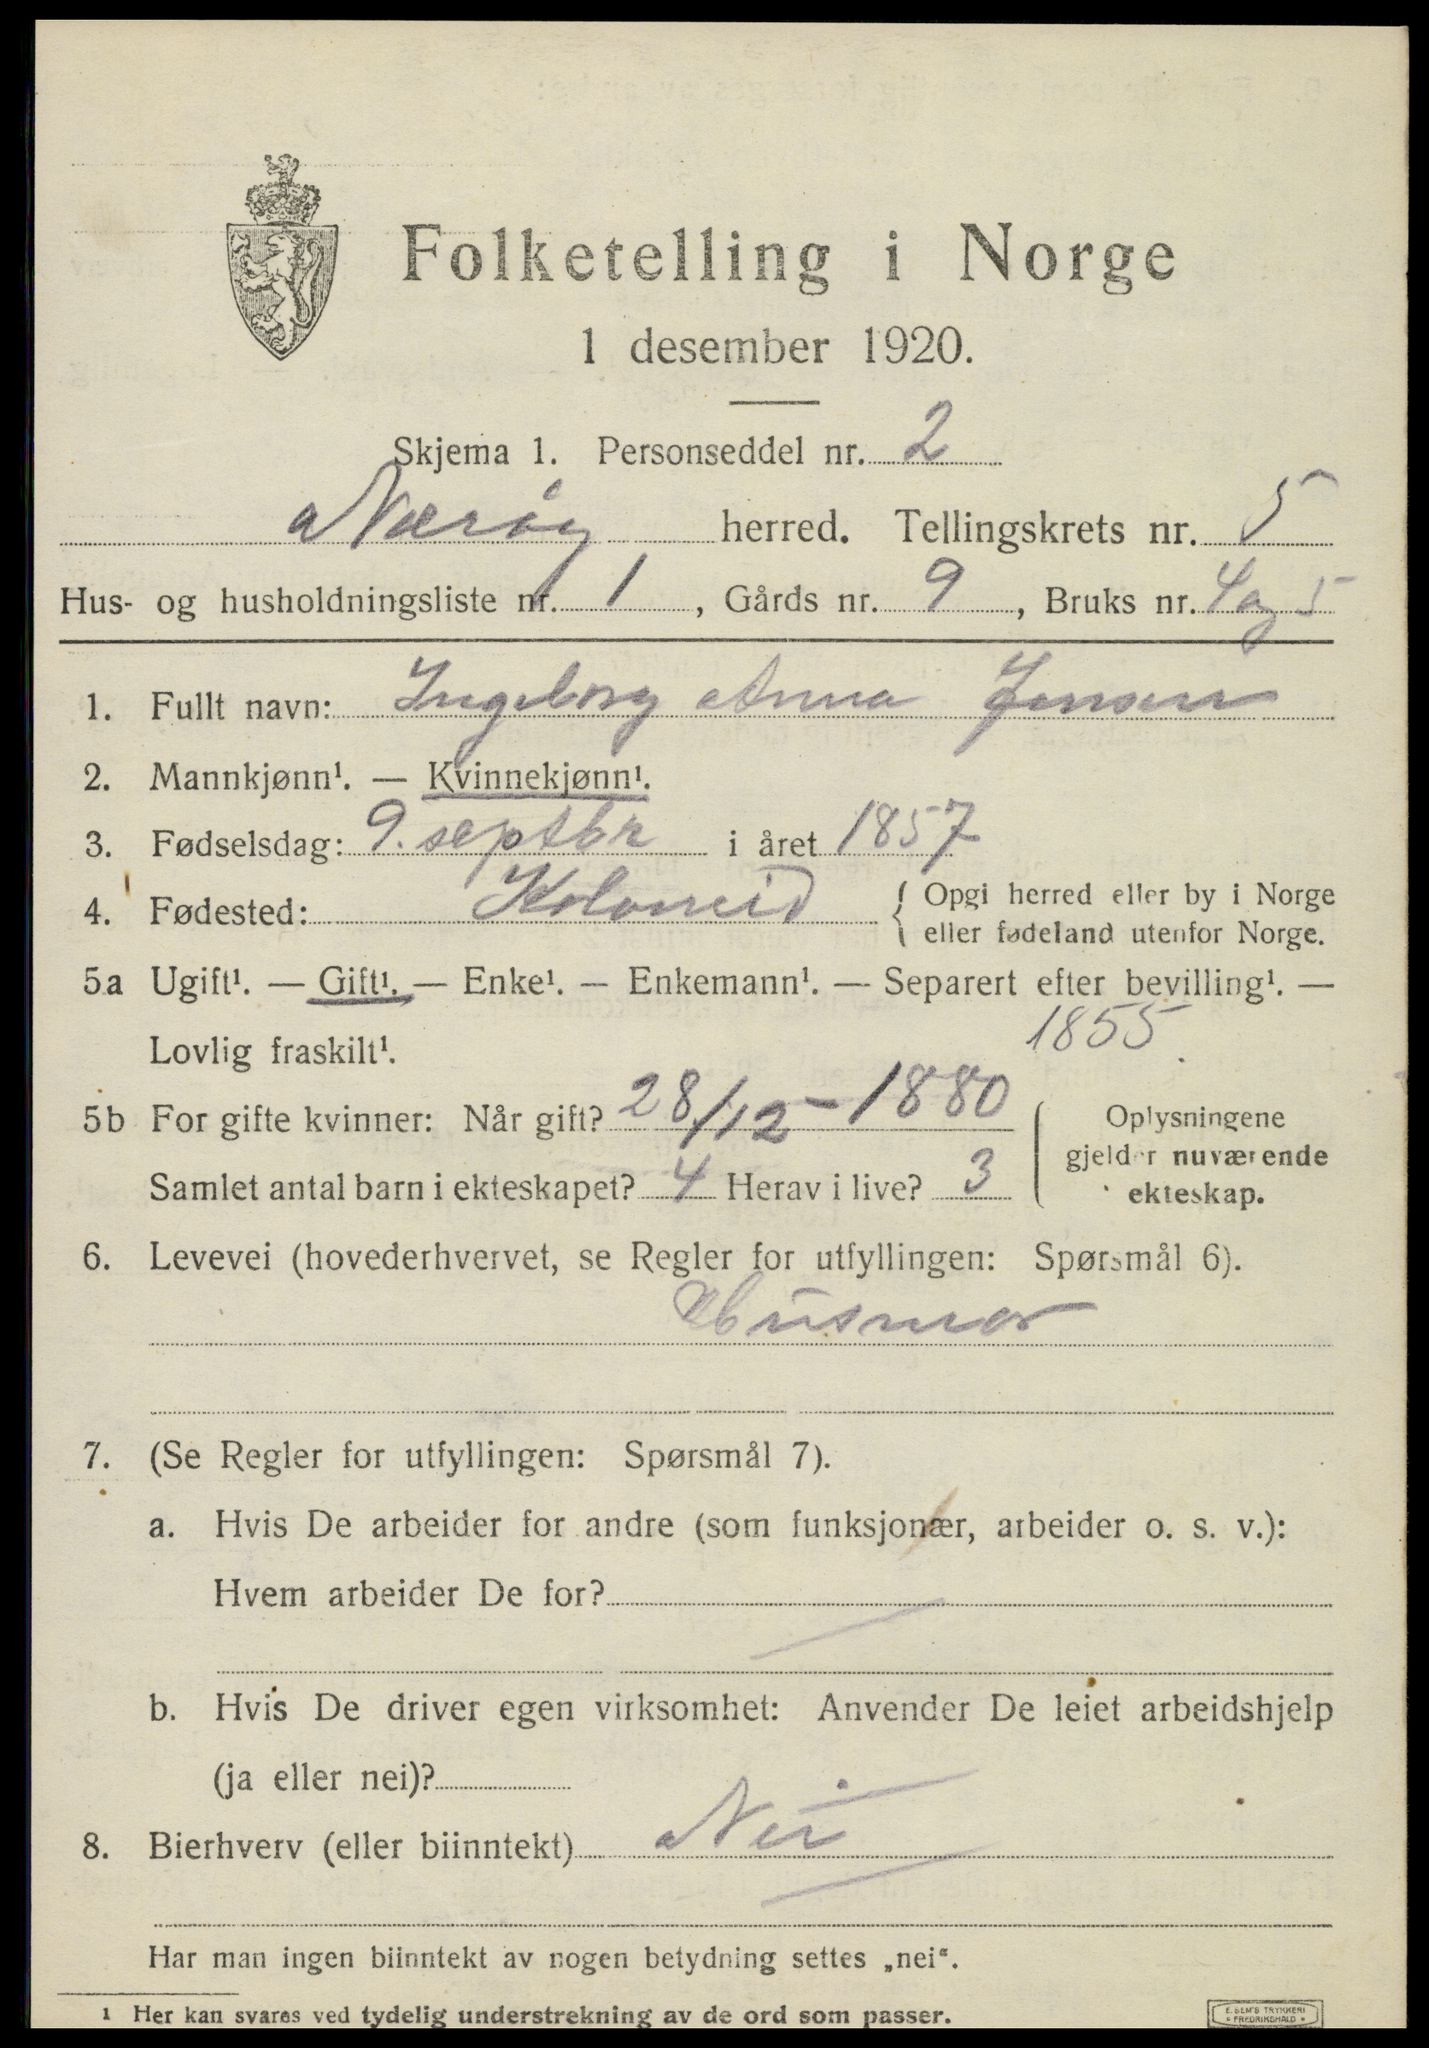 Folketelling i Norge
1 desember 1920.
Skjema 1. Personseddel nr. 2
Nærøy herred. Tellingskrets nr. 5
Hus- og husholdningsliste nr. 1, Gårds nr. 9, Bruks nr. 4 og 5
1. Fullt navn: Ingeborg Anna Jensen
2. Mannkjønn¹. — Kvinnekjønn¹.
3. Fødselsdag: 9. septbr i året 1857
4. Fødested: Kolvereid { Opgi herred eller by i Norge
eller fødeland utenfor Norge.
5a Ugift¹. — Gift¹. — Enke¹. — Enkemann¹. — Separert efter bevilling¹. —
Lovlig fraskilt¹. 1855.
5b For gifte kvinner: Når gift? 28/12 - 1880
Samlet antal barn i ekteskapet? 4 Herav i live? 3
Oplysningene
gjelder nuværende
ekteskap.
6. Levevei (hovederhvervet, se Regler for utfyllingen: Spørsmål 6).
Husmor
7. (Se Regler for utfyllingen: Spørsmål 7).
a. Hvis De arbeider for andre (som funksjonær, arbeider o. s. v.):
Hvem arbeider De for?
b. Hvis De driver egen virksomhet: Anvender De leiet arbeidshjelp
(ja eller nei)?
8. Bierhverv (eller biinntekt) Nei
Har man ingen biinntekt av nogen betydning settes „nei“.
1 Her kan svares ved tydelig understrekning av de ord som passer.
E. SEM'S TRYKKERI
FREDRIKSHALD